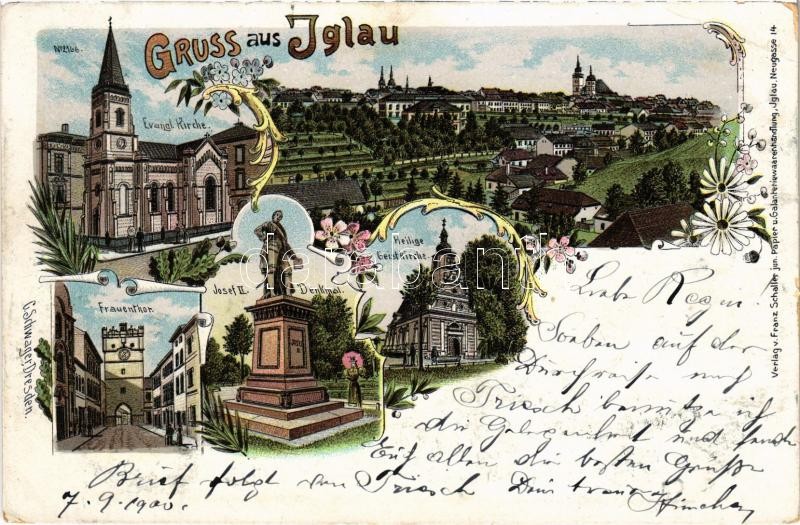 No 2166.
GRUSS aus Iglau
Evangl. Kirche.
Josef II. Denkmal.
Heilige
Geist Kirche.
Frauenthor.
JOSEF
II.
C. Schwager, Dresden.
Verlag v. Franz Schaller jun. Papier u. Galanteriewaarenhandlung, Jglau, Neugasse 14
Liebe
Soeben auf der
Durchreise nach
Triesch benütze ich
die Gelegenheit und sende
Euch allen die besten Grüsse
Brief folgt von Triesch Dein
7.9.1900.